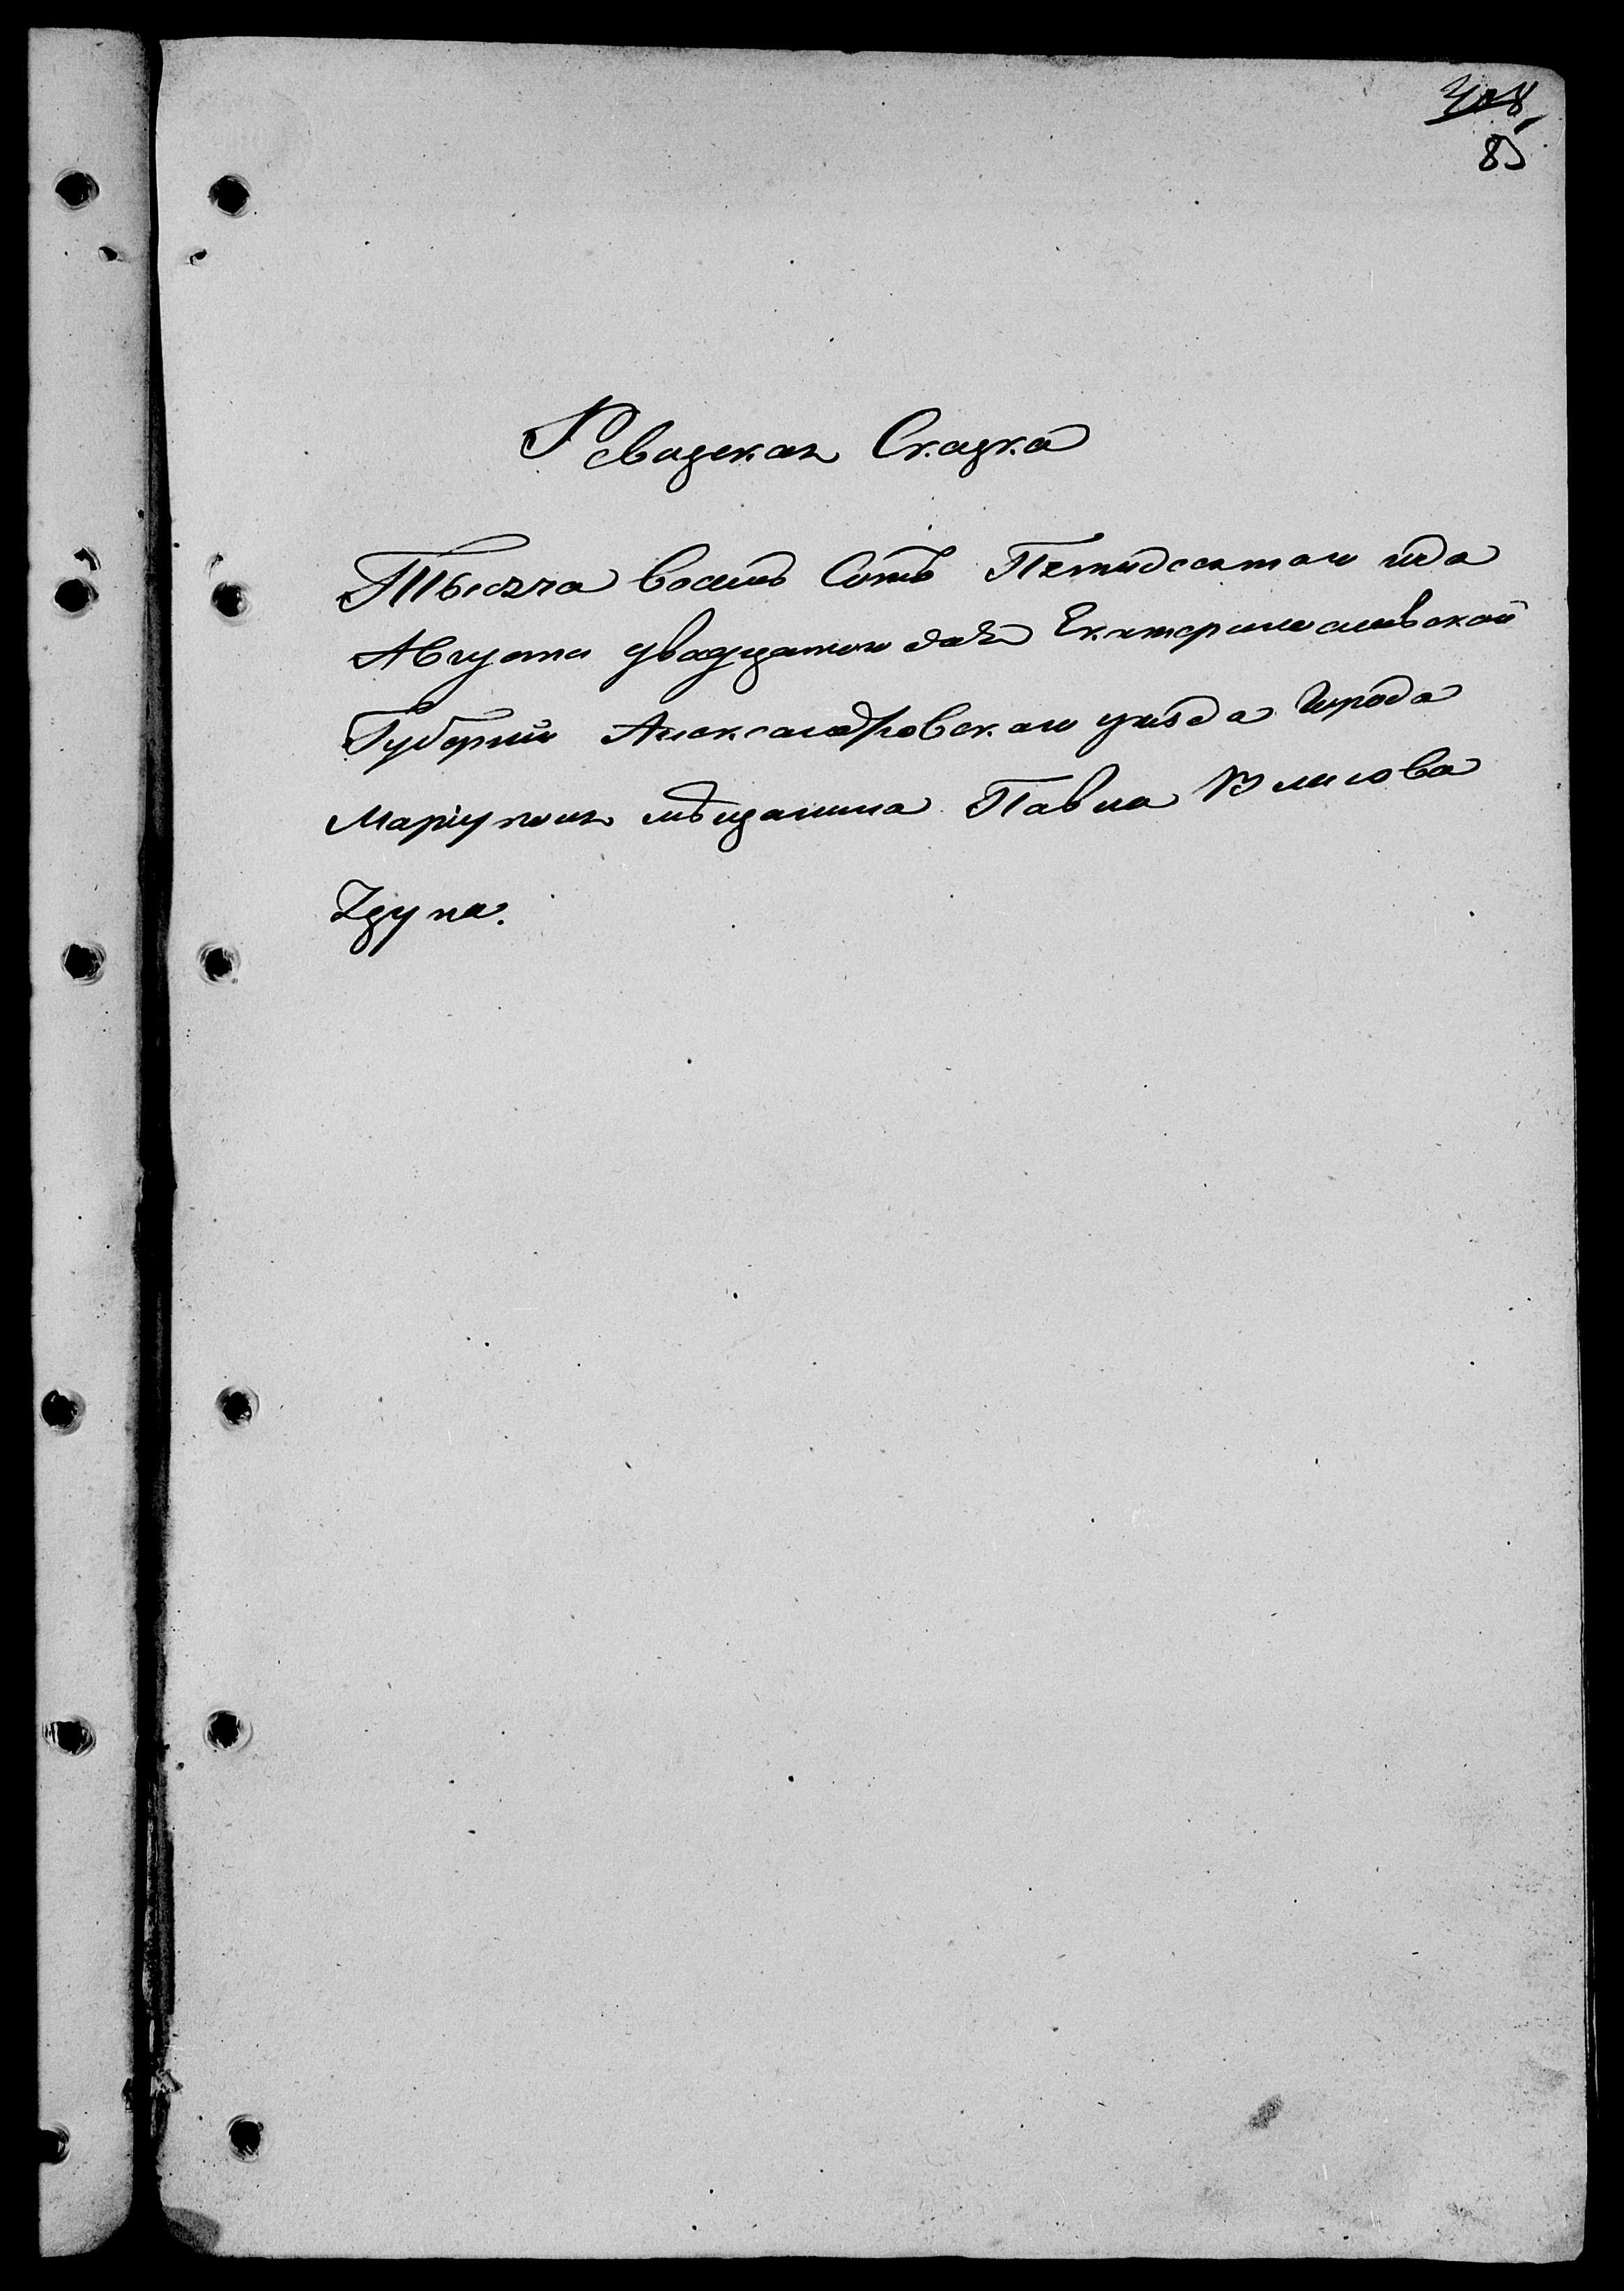 85
Ревизская Сказка
Тысяча восемь Сотъ Пятидесятаго года
Августа двадцатого дня Екатеринославской
Губернии Александровскаго уезда Города
Мариуполя мѣщанина Павла